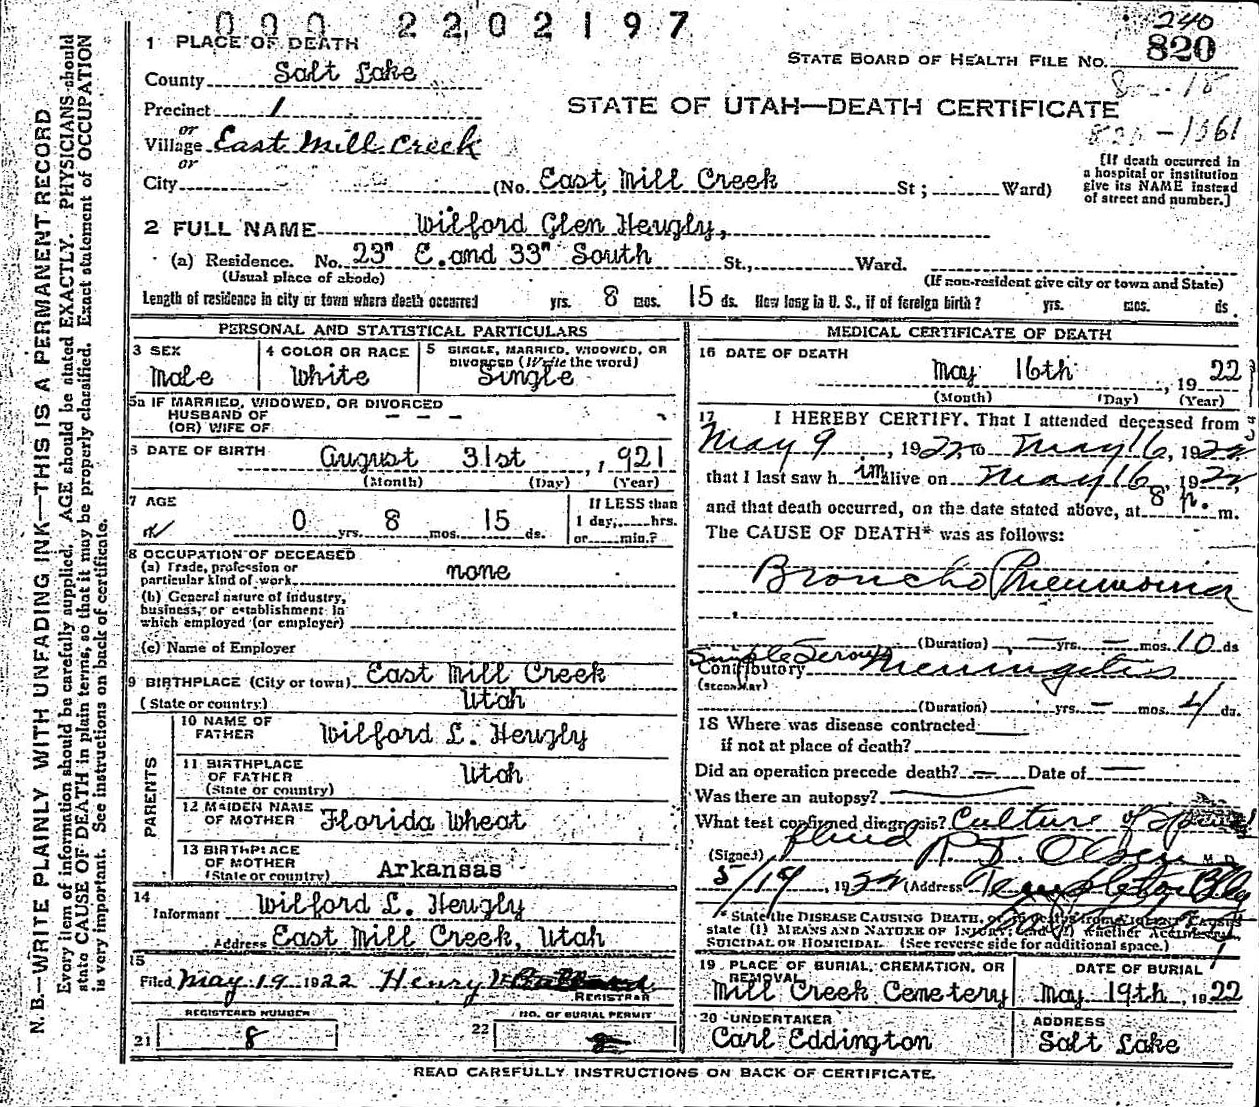 000 2202197
240
1 PLACE OF DEATH
STATE BOARD OF HEALTH FILE NO. 820
County Salt Lake
Precinct 1
STATE OF UTAH—DEATH CERTIFICATE
or
Village East Mill Creek
or
City (No. East Mill Creek St; Ward)
[If death occurred in
a hospital or institution
give its NAME instead
of street and number.]
2 FULL NAME Wilford Glen Heugly,
(a) Residence. No. 23" E. and 33" South St., Ward.
(Usual place of abode) (If non-resident give city or town and State)
Length of residence in city or town where death occurred yrs. 8 mos. 15 ds. How long in U. S., if of foreign birth? yrs. mos. ds.
PERSONAL AND STATISTICAL PARTICULARS
3 SEX
Male
4 COLOR OR RACE
White
5 SINGLE, MARRIED, WIDOWED, OR
DIVORCED (Write the word)
Single
5a IF MARRIED, WIDOWED, OR DIVORCED
HUSBAND OF
(OR) WIFE OF
6 DATE OF BIRTH
August 31st, 1921
(Month) (Day) (Year)
7 AGE
0 yrs. 8 mos. 15 ds.
If LESS than
1 day, hrs.
or min.?
8 OCCUPATION OF DECEASED
(a) Trade, profession or
particular kind of work none
(b) General nature of industry,
business, or establishment in
which employed (or employer)
(c) Name of Employer
9 BIRTHPLACE (City or town) East Mill Creek
(State or country) Utah
PARENTS
10 NAME OF
FATHER Wilford L. Heugly
11 BIRTHPLACE
OF FATHER Utah
(State or country)
12 MAIDEN NAME
OF MOTHER Florida Wheat
13 BIRTHPLACE
OF MOTHER
(State or country) Arkansas
14
Informant Wilford L. Heugly
Address East Mill Creek, Utah
15
Filed May 19 1922 Henry
REGISTRAR
REGISTERED NUMBER
21 8
NO. OF BURIAL PERMIT
22
MEDICAL CERTIFICATE OF DEATH
16 DATE OF DEATH
May 16th, 1922
(Month) (Day) (Year)
17 I HEREBY CERTIFY, That I attended deceased from
May 9, 1922, to May 16, 1922
that I last saw him alive on May 16, 1922,
and that death occurred, on the date stated above, at 8 p. m.
The CAUSE OF DEATH* was as follows:
Broncho Pneumonia
(Duration) yrs. mos. 10 ds
Simple Serous Meningitis
Contributory
(SECONDARY)
(Duration) yrs. mos. 4 ds.
18 Where was disease contracted
if not at place of death?
Did an operation precede death? Date of
Was there an autopsy?
What test confirmed diagnosis? Culture of Spinal
fluid
(Signed) Olsen M. D.
5/19, 1922 (Address Templeton Bldg
* State the DISEASE CAUSING DEATH, or in deaths from VIOLENT CAUSES
state (1) MEANS AND NATURE OF INJURY, and (2) whether ACCIDENTAL,
SUICIDAL OR HOMICIDAL. (See reverse side for additional space.)
19 PLACE OF BURIAL, CREMATION, OR
REMOVAL
Mill Creek Cemetery
DATE OF BURIAL
May 19th, 1922
20 UNDERTAKER
Carl Eddington
ADDRESS
Salt Lake
READ CAREFULLY INSTRUCTIONS ON BACK OF CERTIFICATE.
N. B.—WRITE PLAINLY WITH UNFADING INK—THIS IS A PERMANENT RECORD
Every item of information should be carefully supplied. AGE should be stated EXACTLY. PHYSICIANS should
state CAUSE OF DEATH in plain terms, so that it may be properly classified. Exact statement of OCCUPATION
is very important. See instructions on back of certificate.